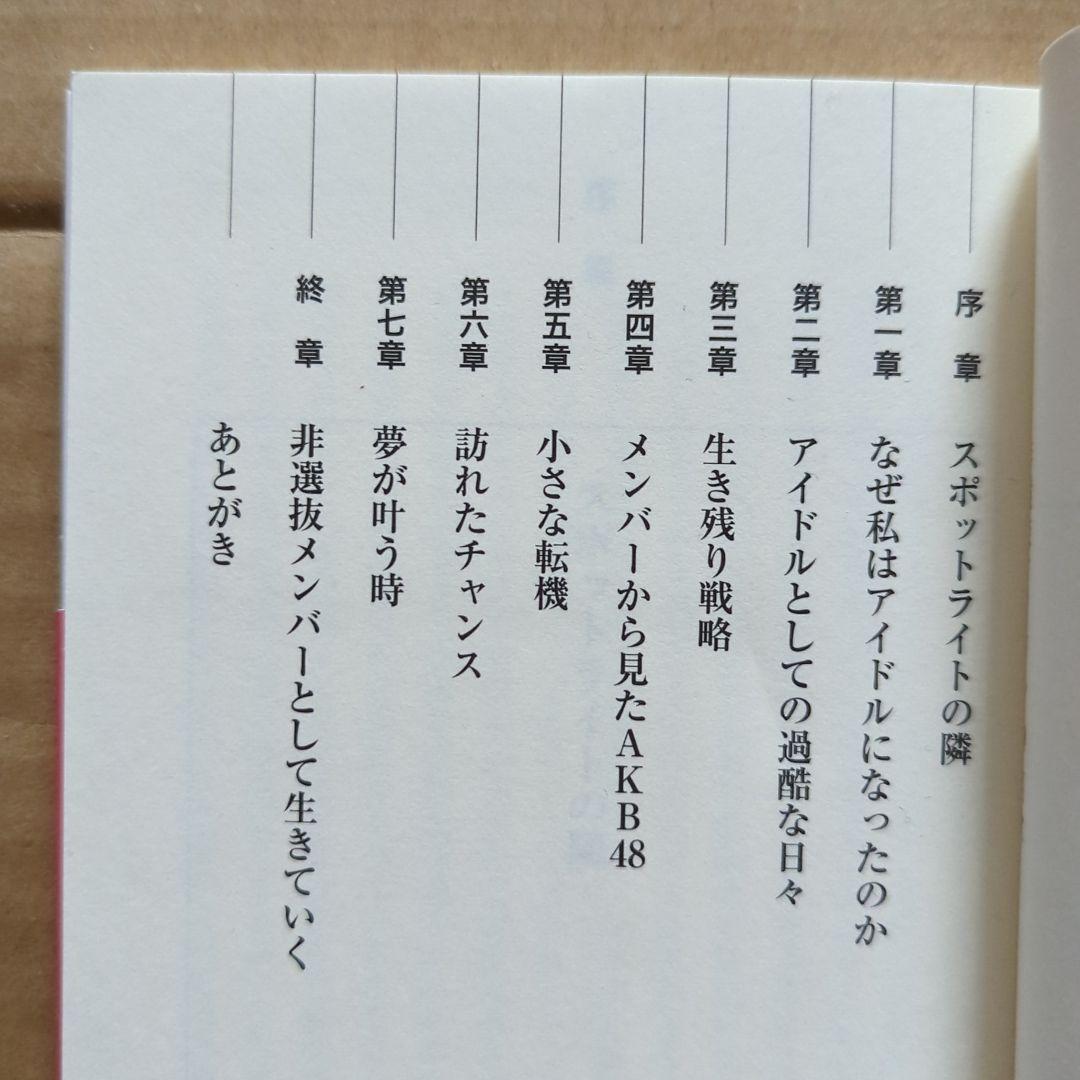 序章 スポットライトの隣
第一章 なぜ私はアイドルになったのか
第二章 アイドルとしての過酷な日々
第三章 生き残り戦略
第四章 メンバーから見たAKB48
第五章 小さな転機
第六章 訪れたチャンス
第七章 夢が叶う時
終章 非選抜メンバーとして生きていく
あとがき